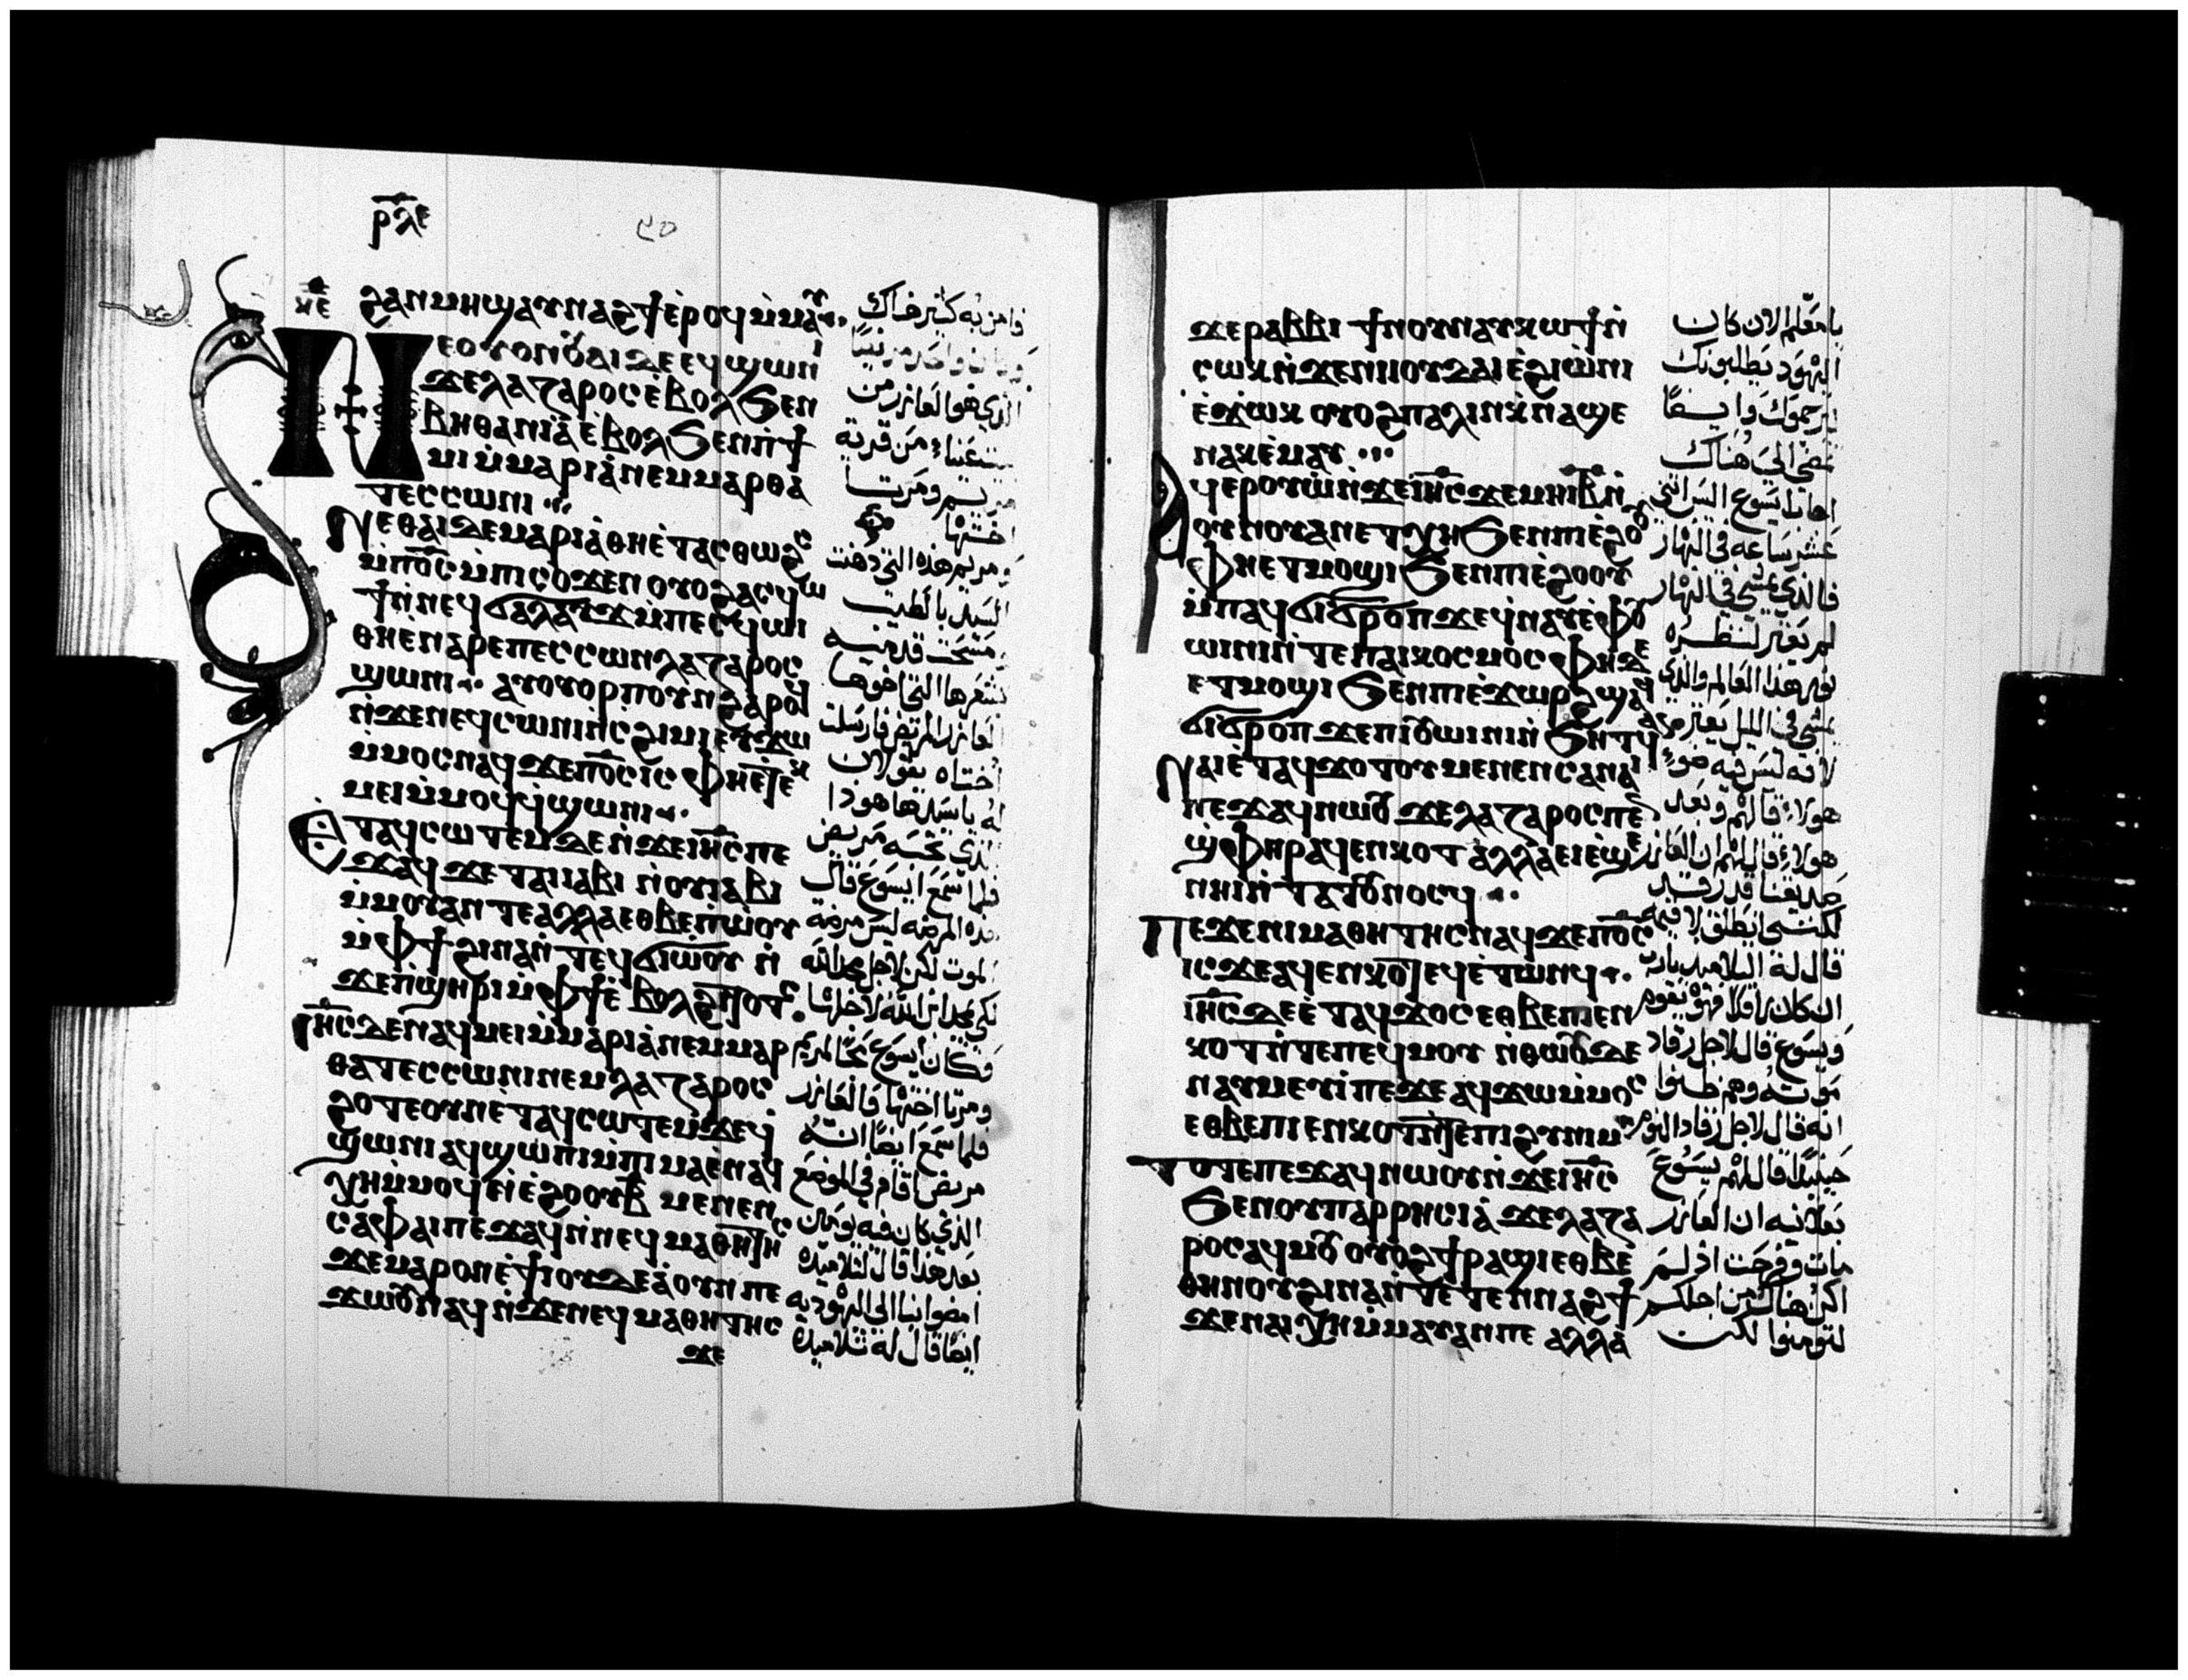 ⲣⲗⲉ
ⲕⲉ ϩⲁⲛⲙⲏϣ ⲁⲩⲛⲁϩϯ ⲉⲣⲟϥ ⲙⲙⲁⲩ
ⲛⲉ ⲟⲩⲟⲛ ⲟⲩⲁⲓ ⲇⲉ ⲉϥϣⲱⲛⲓ
ϫⲉ ⲗⲁⲍⲁⲣⲟⲥ ⲉⲃⲟⲗ ϧⲉⲛ
ⲃⲏⲑⲁⲛⲓⲁ ⲉⲃⲟⲗ ϧⲉⲛ ⲡϯ
ⲙⲓ ⲙⲙⲁⲣⲓⲁ ⲛⲉⲙ ⲙⲁⲣⲑⲁ
ⲧⲉⲥⲥⲱⲛⲓ
ⲛⲉ ⲑⲁⲓ ⲇⲉ ⲙⲁⲣⲓⲁ ⲑⲏ ⲉⲧⲁⲥⲑⲱϩⲥ
ⲙⲡⲟⲥ ⲙⲡⲓⲥⲟϫⲉⲛ ⲟⲩⲟϩ ⲁⲥϥⲱ
ϯ ⲛⲛⲉϥϭⲁⲗⲁⲩϫ ⲙⲡⲉⲥϥⲱⲓ
ⲑⲏ ⲉⲛⲁⲣⲉ ⲡⲉⲥⲥⲟⲛ ⲗⲁⲍⲁⲣⲟⲥ
ϣⲱⲛⲓ ⲁⲩⲟⲩⲟⲣⲡ ⲟⲩⲛ ϩⲁⲣⲟϥ
ⲛϫⲉ ⲛⲉϥⲥⲱⲛⲓ ⲛⲥϩⲓⲙⲓ ⲉⲩϫⲱ
ⲙⲙⲟⲥ ⲛⲁϥ ϫⲉ ⲡⲟⲥ ⲓⲥ ⲫⲏ ⲉⲧⲉⲕ
ⲙⲉⲓ ⲙⲙⲟϥ ϥϣⲱⲛⲓ
ⲉⲧⲁϥⲥⲱⲧⲉⲙ ⲇⲉ ⲛϫⲉ ⲓⲏⲥ ⲡⲉ
ϫⲁϥ ϫⲉ ⲧⲁⲓⲓⲁⲃⲓ ⲛⲟⲩⲓⲁⲃⲓ
ⲙⲙⲟⲩ ⲁⲛ ⲧⲉ ⲁⲗⲗⲁ ⲉⲑⲃⲉ ⲡⲱⲟⲩ
ⲙⲫϯ ϩⲓⲛⲁ ⲛⲧⲉϥϭⲓⲱⲟⲩ ⲛ
ϫⲉ ⲡϣⲏⲣⲓ ⲙⲫϯ ⲉⲃⲟⲗ ϩⲓⲧⲟⲧⲥ
ⲓⲏⲥ ⲇⲉ ⲛⲁϥⲙⲉⲓ ⲙⲙⲁⲣⲓⲁ ⲛⲉⲙ ⲙⲁⲣ
ⲑⲁ ⲧⲉⲥⲥⲱⲛⲓ ⲛⲉⲙ ⲗⲁⲍⲁⲣⲟⲥ
ϩⲟⲧⲉ ⲟⲩⲛ ⲉⲧⲁϥⲥⲱⲧⲉⲙ ϫⲉ ϥ
ϣⲱⲛⲓ ⲁϥϣⲱⲡⲓ ⲙⲡⲓⲙⲁ ⲉⲛⲁϥ
ⲭⲏ ⲙⲙⲟϥ ⲉⲓ ⲉϩⲟⲟⲩ ⲃ ⲙⲉⲛⲉⲛ
ⲥⲁ ⲫⲁⲓ ⲡⲉϫⲁϥ ⲛⲛⲉϥⲙⲁⲑⲏⲧⲏⲥ
ϫⲉ ⲙⲁⲣⲟⲛ ⲉϯⲓⲟⲩⲇⲉⲁ ⲟⲩⲛ ⲡⲉ
ϫⲱⲟⲩ ⲛⲁϥ ⲛϫⲉ ⲛⲉϥⲙⲁⲑⲏⲧⲏⲥ
ϫⲉ
فامن به كثير هناك
الذي هو لعازر من
بيت عنيا من قرية
مريم ومرتا
اختها
ومريم هذه التي دهنت
السيد بالطيب
ومسحت قدميه
بشعرها التي اخوها
لعازر المريض فارسلت
اختاه يقولان
له يا سيد ها هوذا
الذي تحبه مريض
فلما سمع ايسوع قال
هذه المرضه ليس مرضة
الموت لكن لاجل مجد الله
لكي يمجد ابن الله لاجلها
وكان ايسوع يحب المريم
ومرتا اختها والعازر
فلما سمع ايضا انه
مريض اقام في الموضع
الذي كان فيه يومان
بعد هذا قال لتلاميذه
امضوا بنا الى اليهودية
ايضا قال له تلاميذه
ϫⲉ ⲣⲁⲃⲃⲓ ϯⲛⲟⲩ ⲛⲁⲩⲕⲱϯ ⲛ
ⲥⲱⲕ ⲛϫⲉ ⲛⲓⲓⲟⲩⲇⲁⲓ ⲉϩⲓⲱⲛⲓ
ⲉϫⲱⲕ ⲟⲩⲟϩ ⲡⲁⲗⲓⲛ ⲭⲛⲁϣⲉ
ⲛⲁⲕ ⲉⲙⲁⲩ
ⲁϥⲉⲣⲟⲩⲱ ⲛϫⲉ ⲓⲏⲥ ϫⲉ ⲙⲏ ⲓⲃ ⲛ
ⲟⲩⲛⲟⲩ ⲁⲛ ⲉⲧⲭⲏ ϧⲉⲛ ⲡⲓⲉϩⲟⲟⲩ
ⲫⲏ ⲉⲧⲙⲟϣⲓ ϧⲉⲛ ⲡⲓⲉϩⲟⲟⲩ
ⲙⲡⲁϥϭⲓϭⲣⲟⲡ ϫⲉ ϥⲛⲁⲩ ⲉⲫⲟⲩ
ⲱⲓⲛⲓ ⲛⲧⲉ ⲡⲁⲓⲕⲟⲥⲙⲟⲥ ⲫⲏ ⲇⲉ
ⲉⲧⲙⲟϣⲓ ϧⲉⲛ ⲡⲓⲉϫⲱⲣϩ ϣⲁϥ
ϭⲓϭⲣⲟⲡ ϫⲉ ⲡⲓⲟⲩⲱⲓⲛⲓ ⲛϧⲏⲧϥ ⲁⲛ
ⲛⲁⲓ ⲉⲧⲁϥϫⲟⲧⲟⲩ ⲙⲉⲛⲉⲛⲥⲁ ⲛⲁⲓ
ⲡⲉϫⲁϥ ⲛⲱⲟⲩ ϫⲉ ⲗⲁⲍⲁⲣⲟⲥ ⲡⲉⲛ
ϣⲫⲏⲣ ⲁϥⲉⲛⲕⲟⲧ ⲁⲗⲗⲁ ⲉⲓⲉϣⲉ
ⲛⲏⲓ ⲛⲧⲁⲧⲟⲩⲛⲟⲥϥ
ⲡⲉϫⲉ ⲛⲓⲙⲁⲑⲏⲧⲏⲥ ⲛⲁϥ ϫⲉ ⲡⲟⲥ
ⲓⲥϫⲉ ⲁϥⲉⲛⲕⲟⲧ ⲉϥⲉⲧⲱⲛϥ
ⲓⲏⲥ ⲇⲉ ⲉⲧⲁϥϫⲟⲥ ⲉⲑⲃⲉ ⲡⲉⲛ
ⲕⲟⲧ ⲛⲧⲉ ⲡⲉϥⲙⲟⲩ ⲛⲑⲱⲟⲩ ⲇⲉ
ⲛⲁⲩⲙⲉⲩⲓ ⲡⲉ ϫⲉ ⲁϥϫⲱ ⲙⲙⲟⲥ
ⲉⲑⲃⲉ ⲡⲓⲉⲛⲕⲟⲧ ⲛⲧⲉ ⲡⲓϩⲩⲛⲓⲙ
ⲧⲟⲧⲉ ⲡⲉϫⲁϥ ⲛⲱⲟⲩ ⲛϫⲉ ⲓⲏⲥ
ϧⲉⲛ ⲟⲩⲡⲁⲣⲣⲏⲥⲓⲁ ϫⲉ ⲗⲁⲍⲁ
ⲣⲟⲥ ⲁϥⲙⲟⲩ ⲟⲩⲟϩ ϯⲣⲁϣⲓ ⲉⲑⲃⲉ
ⲑⲏⲛⲟⲩ ϩⲓⲛⲁ ⲛⲧⲉⲧⲉⲛⲛⲁϩϯ
ϫⲉ ⲛⲁⲓⲭⲏ ⲙⲙⲁⲩ ⲁⲛ ⲡⲉ ⲁⲗⲗⲁ
يا معلم الان كان
اليهود يطلبونك
ليرجموك وايضا
تمضي الى هناك
اجاب ايسوع اليس اثني
عشر ساعه في النهار
فالذي يمشي في النهار
لم يعثر لنظره
نور هذا العالم والذي
يمشي في الليل يعثر
لانه ليس فيه ضوء
هولاء قالهم وبعد
هولاء قال لهم ان العازر
صديقنا قد رقد
لكنني انطلق لاقيمه
قال له التلاميذ يا رب
ان كان راقدا فهو يقوم
ويسوع قال لاجل رقاد
موته وهم ظنوا
انه قال لاجل رقاد النوم
حينيذ قال لهم يسوع
بعلانيه ان العازر
مات وفرحت اذ لم
اكن هناك من اجلكم
لتومنوا لكن